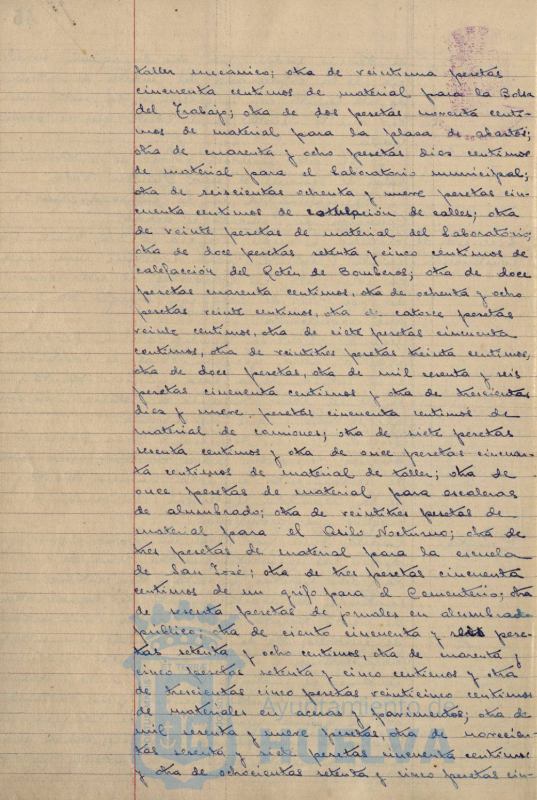 taller mecánico; otra de veintiuna pesetas
cincuenta centimos de material para la Bolsa
del Trabajo; otra de dos pesetas noventa centi-
mos de material para la plaza de abastos;
otra de cuarenta y ocho pesetas diez centimos
de material para el Laboratorio municipal;
otra de seiscientas ochenta y nueve pesetas cin-
cuenta centimos de rotulación de calles; otra
de veinte pesetas de material del Laboratorio;
otra de doce pesetas setenta y cinco centimos de
calefacción del Retén de Bomberos; otra de doce
pesetas cuarenta centimos, otra de ochenta y ocho
pesetas veinte centimos, otra de catorce pesetas
veinte centimos, otra de siete pesetas cincuenta
centimos, otra de veintitres pesetas treinta centimos,
otra de doce pesetas, otra de mil sesenta y seis
pesetas cincuenta centimos y otra de trescientas
diez y nueve pesetas cincuenta centimos de
material de camiones; otra de siete pesetas
sesenta centimos y otra de once pesetas cincuen-
ta centimos de material de taller; otra de
once pesetas de material para escaleras
de alumbrado; otra de veintitres pesetas de
material para el Asilo Nocturno; otra de
tres pesetas de material para la escuela
de San José; otra de tres pesetas cincuenta
centimos de un grifo para el Cementerio; otra
de sesenta pesetas de jornales en alumbrado
público; otra de ciento cincuenta y seis pese-
tas setenta y ocho centimos, otra de cuarenta y
cinco pesetas setenta y cinco centimos y otra
de trescientas cinco pesetas veinticinco centimos
de materiales en aceras y pavimentos; otra de
mil sesenta y nueve pesetas, otra de novecien-
tas sesenta y siete pesetas cincuenta centimos
y otra de ochocientas setenta y cinco pesetas cin-
Ayuntamiento de
HUELVA